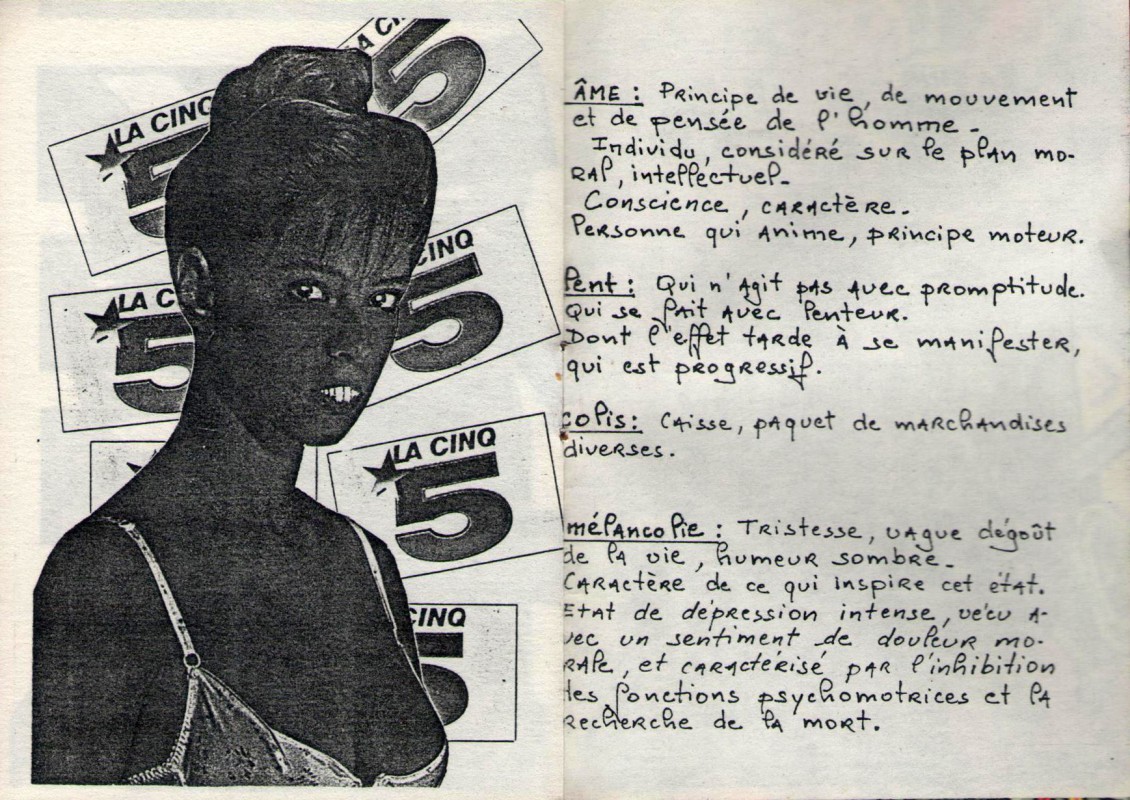 LA CI
5
LA CINQ
5
CINQ
5
LA C
5
LA CINQ
5
CINQ
5
ÂME : Principe de vie, de mouvement
et de pensée de l'homme.
Individu, considéré sur le plan mo-
ral, intellectuel.
Conscience, caractère.
Personne qui anime, principe moteur.
lent : Qui n'agit pas avec promptitude.
Qui se fait avec lenteur.
Dont l'effet tarde à se manifester,
qui est progressif.
colis : Caisse, paquet de marchandises
diverses.
mélancolie : Tristesse, vague dégoût
de la vie, humeur sombre.
Caractère de ce qui inspire cet état.
Etat de dépression intense, vécu a-
vec un sentiment de douleur mo-
rale, et caractérisé par l'inhibition
des fonctions psychomotrices et la
recherche de la mort.